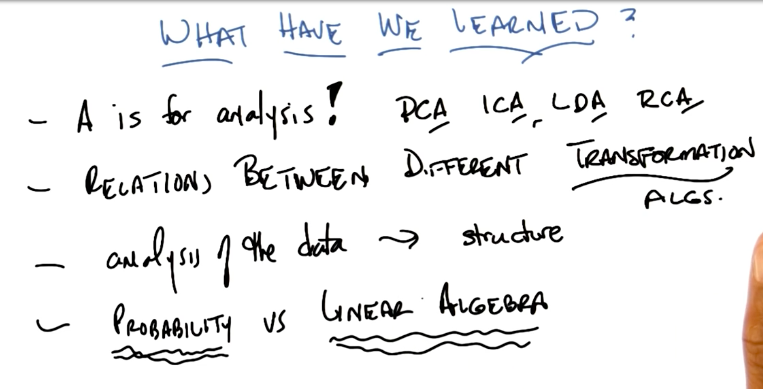 WHAT HAVE WE LEARNED?
- A is for analysis! PCA ICA, LDA RCA
- RELATIONS BETWEEN DIFFERENT TRANSFORMATION
ALGS.
- analysis of the data → structure
- PROBABILITY vs LINEAR ALGEBRA